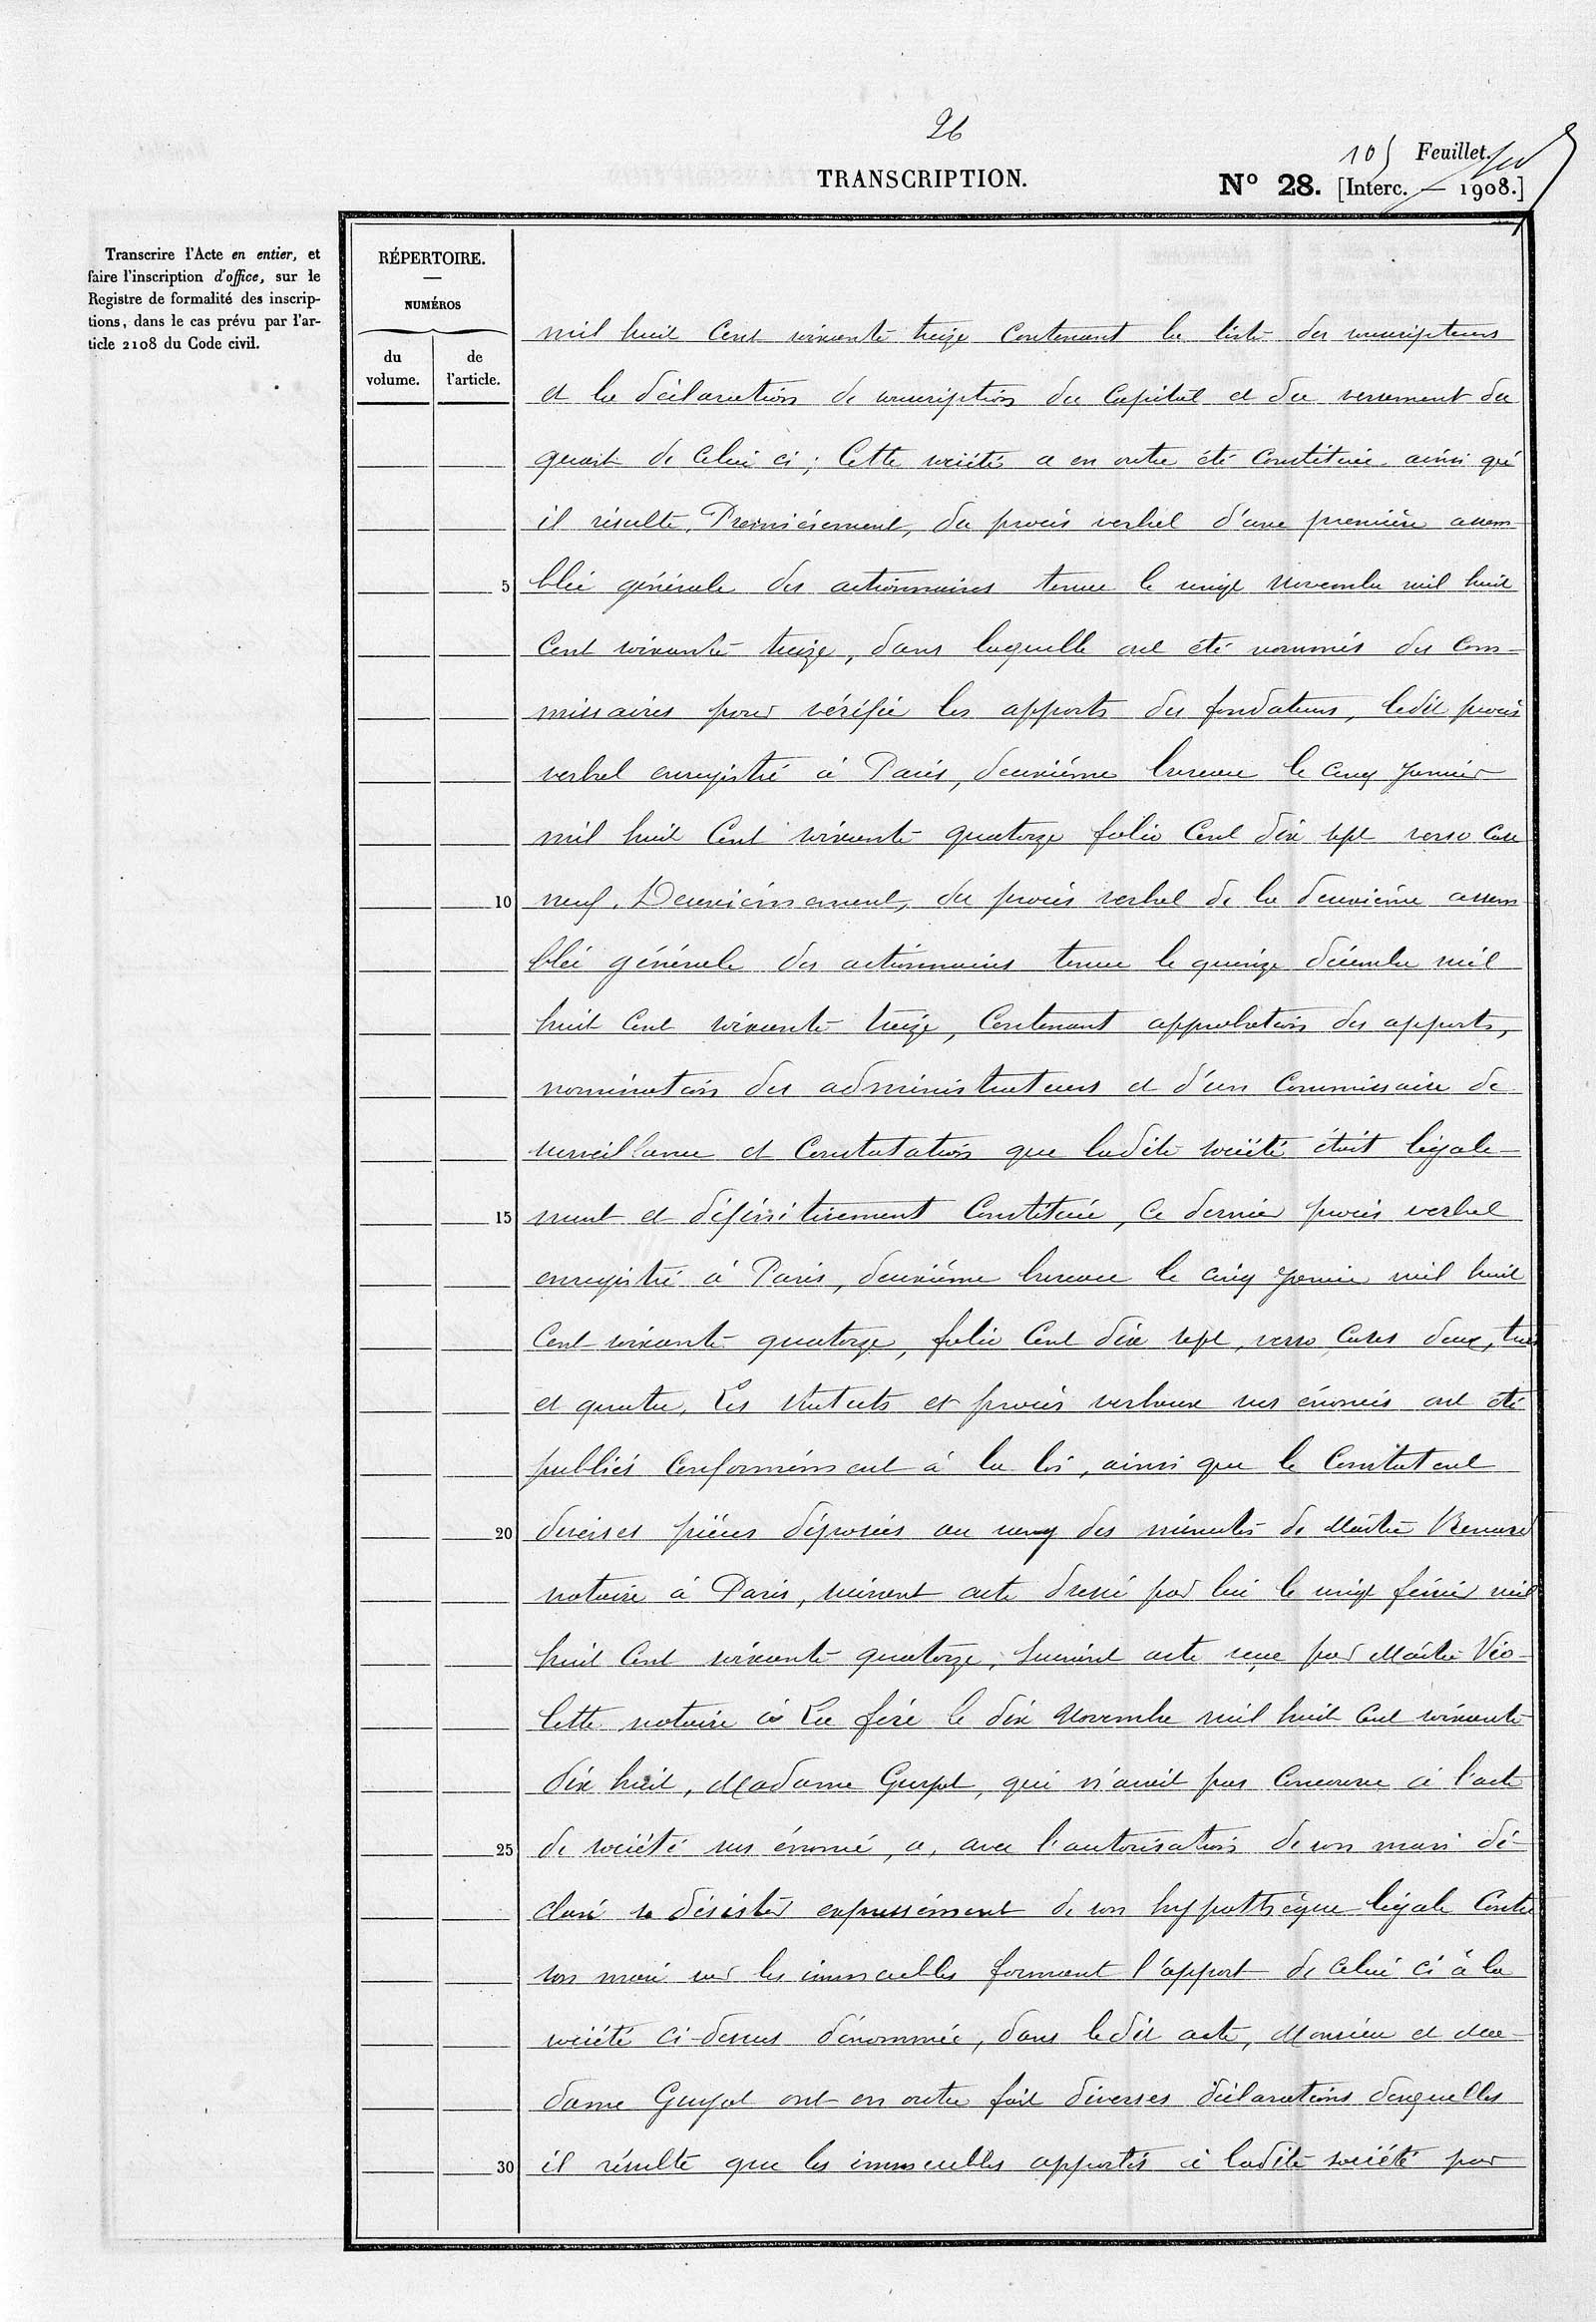 26
105 Feuillet.
TRANSCRIPTION.
N° 28. [Interc. — 1908.]
Transcrire l'Acte en entier, et
faire l'inscription d'office, sur le
Registre de formalité des inscrip-
tions, dans le cas prévu par l'ar-
ticle 2108 du Code civil.
RÉPERTOIRE.
NUMÉROS
du volume.
de l'article.
mil huit Cent soixante treize Contenant la liste des souscripteurs
et la déclaration de souscription du Capital et du versement du
quart de Celui ci ; Cette société a en outre été Constituée ainsi qu'
il résulte, Premièrement, du procès verbal d'une première assem
5 blée générale des actionnaires tenue le vingt novembre mil huit
Cent soixante treize, dans laquelle ont été nommés des Com-
missaires pour vérifier les apports des fondateurs, ledit procès
verbal enregistré à Paris, deuxième bureau le cinq janvier
mil huit Cent soixante quatorze folio Cent dix sept verso Case
10 neuf. Deuxièmement, du procès verbal de la deuxième assem
blée générale des actionnaires tenue le quinze décembre mil
huit Cent soixante treize, Contenant approbation des apports,
nomination des administrateurs et d'un Commissaire de
surveillance et Constatation que ladite société était légale-
15 ment et définitivement Constituée, Ce dernier procès verbal
enregistré à Paris, deuxième bureau le cinq janvier mil huit
Cent soixante quatorze, folio Cent dix sept, verso Cases deux, trois
et quatre, Les statuts et procès verbaux sus énoncés ont été
publiés Conformément à la loi, ainsi que le Constatent
20 diverses pièces déposées au rang des minutes de Maître Renard
notaire à Paris, suivant acte dressé par lui le vingt février mil
huit Cent soixante quatorze, Suivant acte reçu par Maître Vio-
lette notaire à La fère le dix Novembre mil huit Cent soixante
dix huit, Madame Guyot, qui n'avait pas Concouru à l'acte
25 de société sus énoncé, a, avec l'autorisation de son mari dé-
claré se désister expressément de son hypothèque légale Contre
son mari sur les immeubles formant l'apport de Celui ci à la
société ci-dessus dénommée, dans ledit acte, Monsieur et Ma-
dame Guyot ont en outre fait diverses déclarations desquelles
30 il résulte que les immeubles apportés à ladite société par